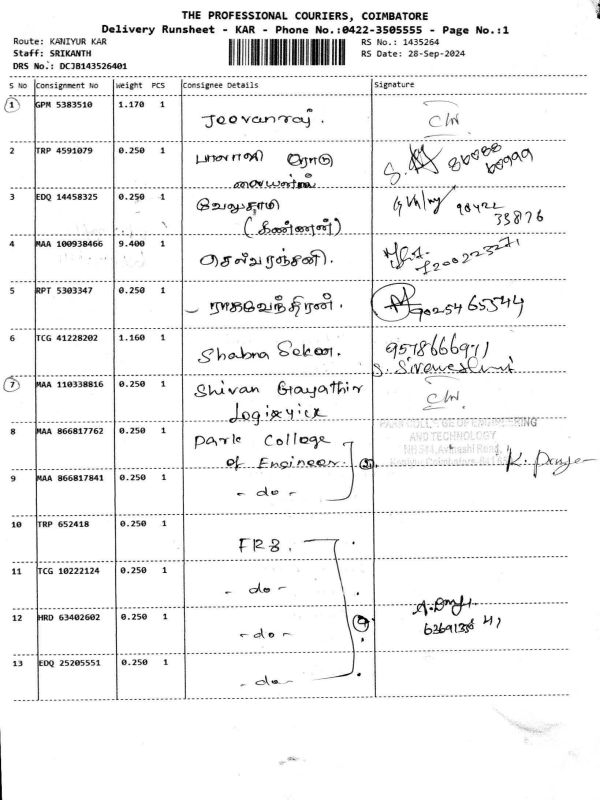 THE PROFESSIONAL COURIERS, COIMBATORE
Delivery Runsheet - KAR - Phone No.:0422-3505555 - Page No.:1
Route: KANIYUR KAR
RS No.: 1435264
Staff: SRIKANTH
RS Date: 28-Sep-2024
DRS No.: DCJB143526401
S No Consignment No Weight PCS Consignee Details Signature
1 GPM 5383510 1.170 1 Jeevanraj.
2 TRP 4591079 0.250 1
3 EDQ 14458325 0.250 1 வேலுசாமி 98422
(கண்ணன்) 33876
4 MAA 100938466 9.400 1 செல்வரஞ்சனி. 7200223271
5 RPT 5303347 0.250 1 ராகவேந்திரன். 9025465544
6 TCG 41228202 1.160 1 Shabna Sekar. 9578666971
7 MAA 110338816 0.250 1 Shivan Gayathir
8 MAA 866817762 0.250 1 Park College
of Engineer.
PARK COLLEGE OF ENGINEERING
AND TECHNOLOGY
9 MAA 866817841 0.250 1 - do -
10 TRP 652418 0.250 1
11 TCG 10222124 0.250 1 - do -
12 HRD 63402602 0.250 1 - do -
13 EDQ 25205551 0.250 1 - do -